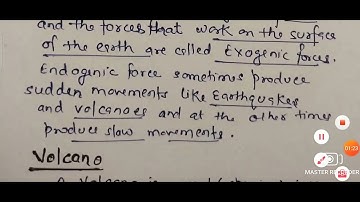 and the forces that work on the surface
of the earth are called Exogenic forces.
Endogenic force sometimes produce
sudden movements like Earthquakes
and volcanoes and at the other times
produce slow movements.
Volcano
01:23
MASTER RECORDER